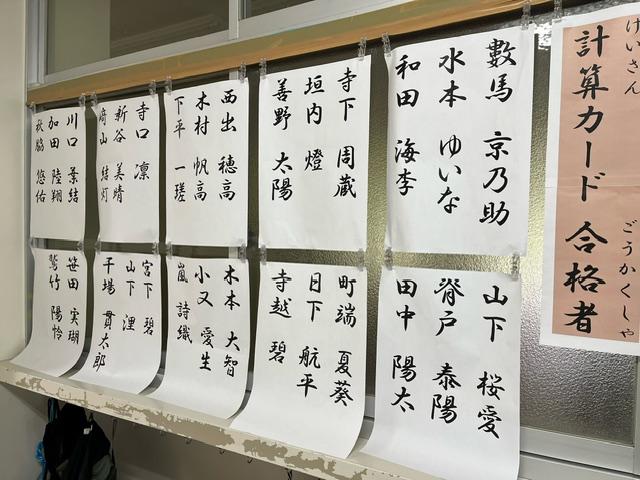 けいさん ごうかくしゃ
計算カード 合格者
數馬 京乃助
水本 ゆいな
和田 海李
寺下 周蔵
垣内 燈
善野 太陽
西出 穂高
木村 帆高
下平 一瑳
寺口 凛
新谷 美晴
崎山 結灯
川口 葉結
加田 陸翔
秋脇 悠佑
山下 桜愛
脊戸 泰陽
田中 陽太
町端 夏葵
日下 航平
寺越 碧
木本 大智
小又 愛生
嵐 詩織
宮下 碧
山下 浬
干場 貫太郎
笹田 実瑚
鷲竹 陽怜